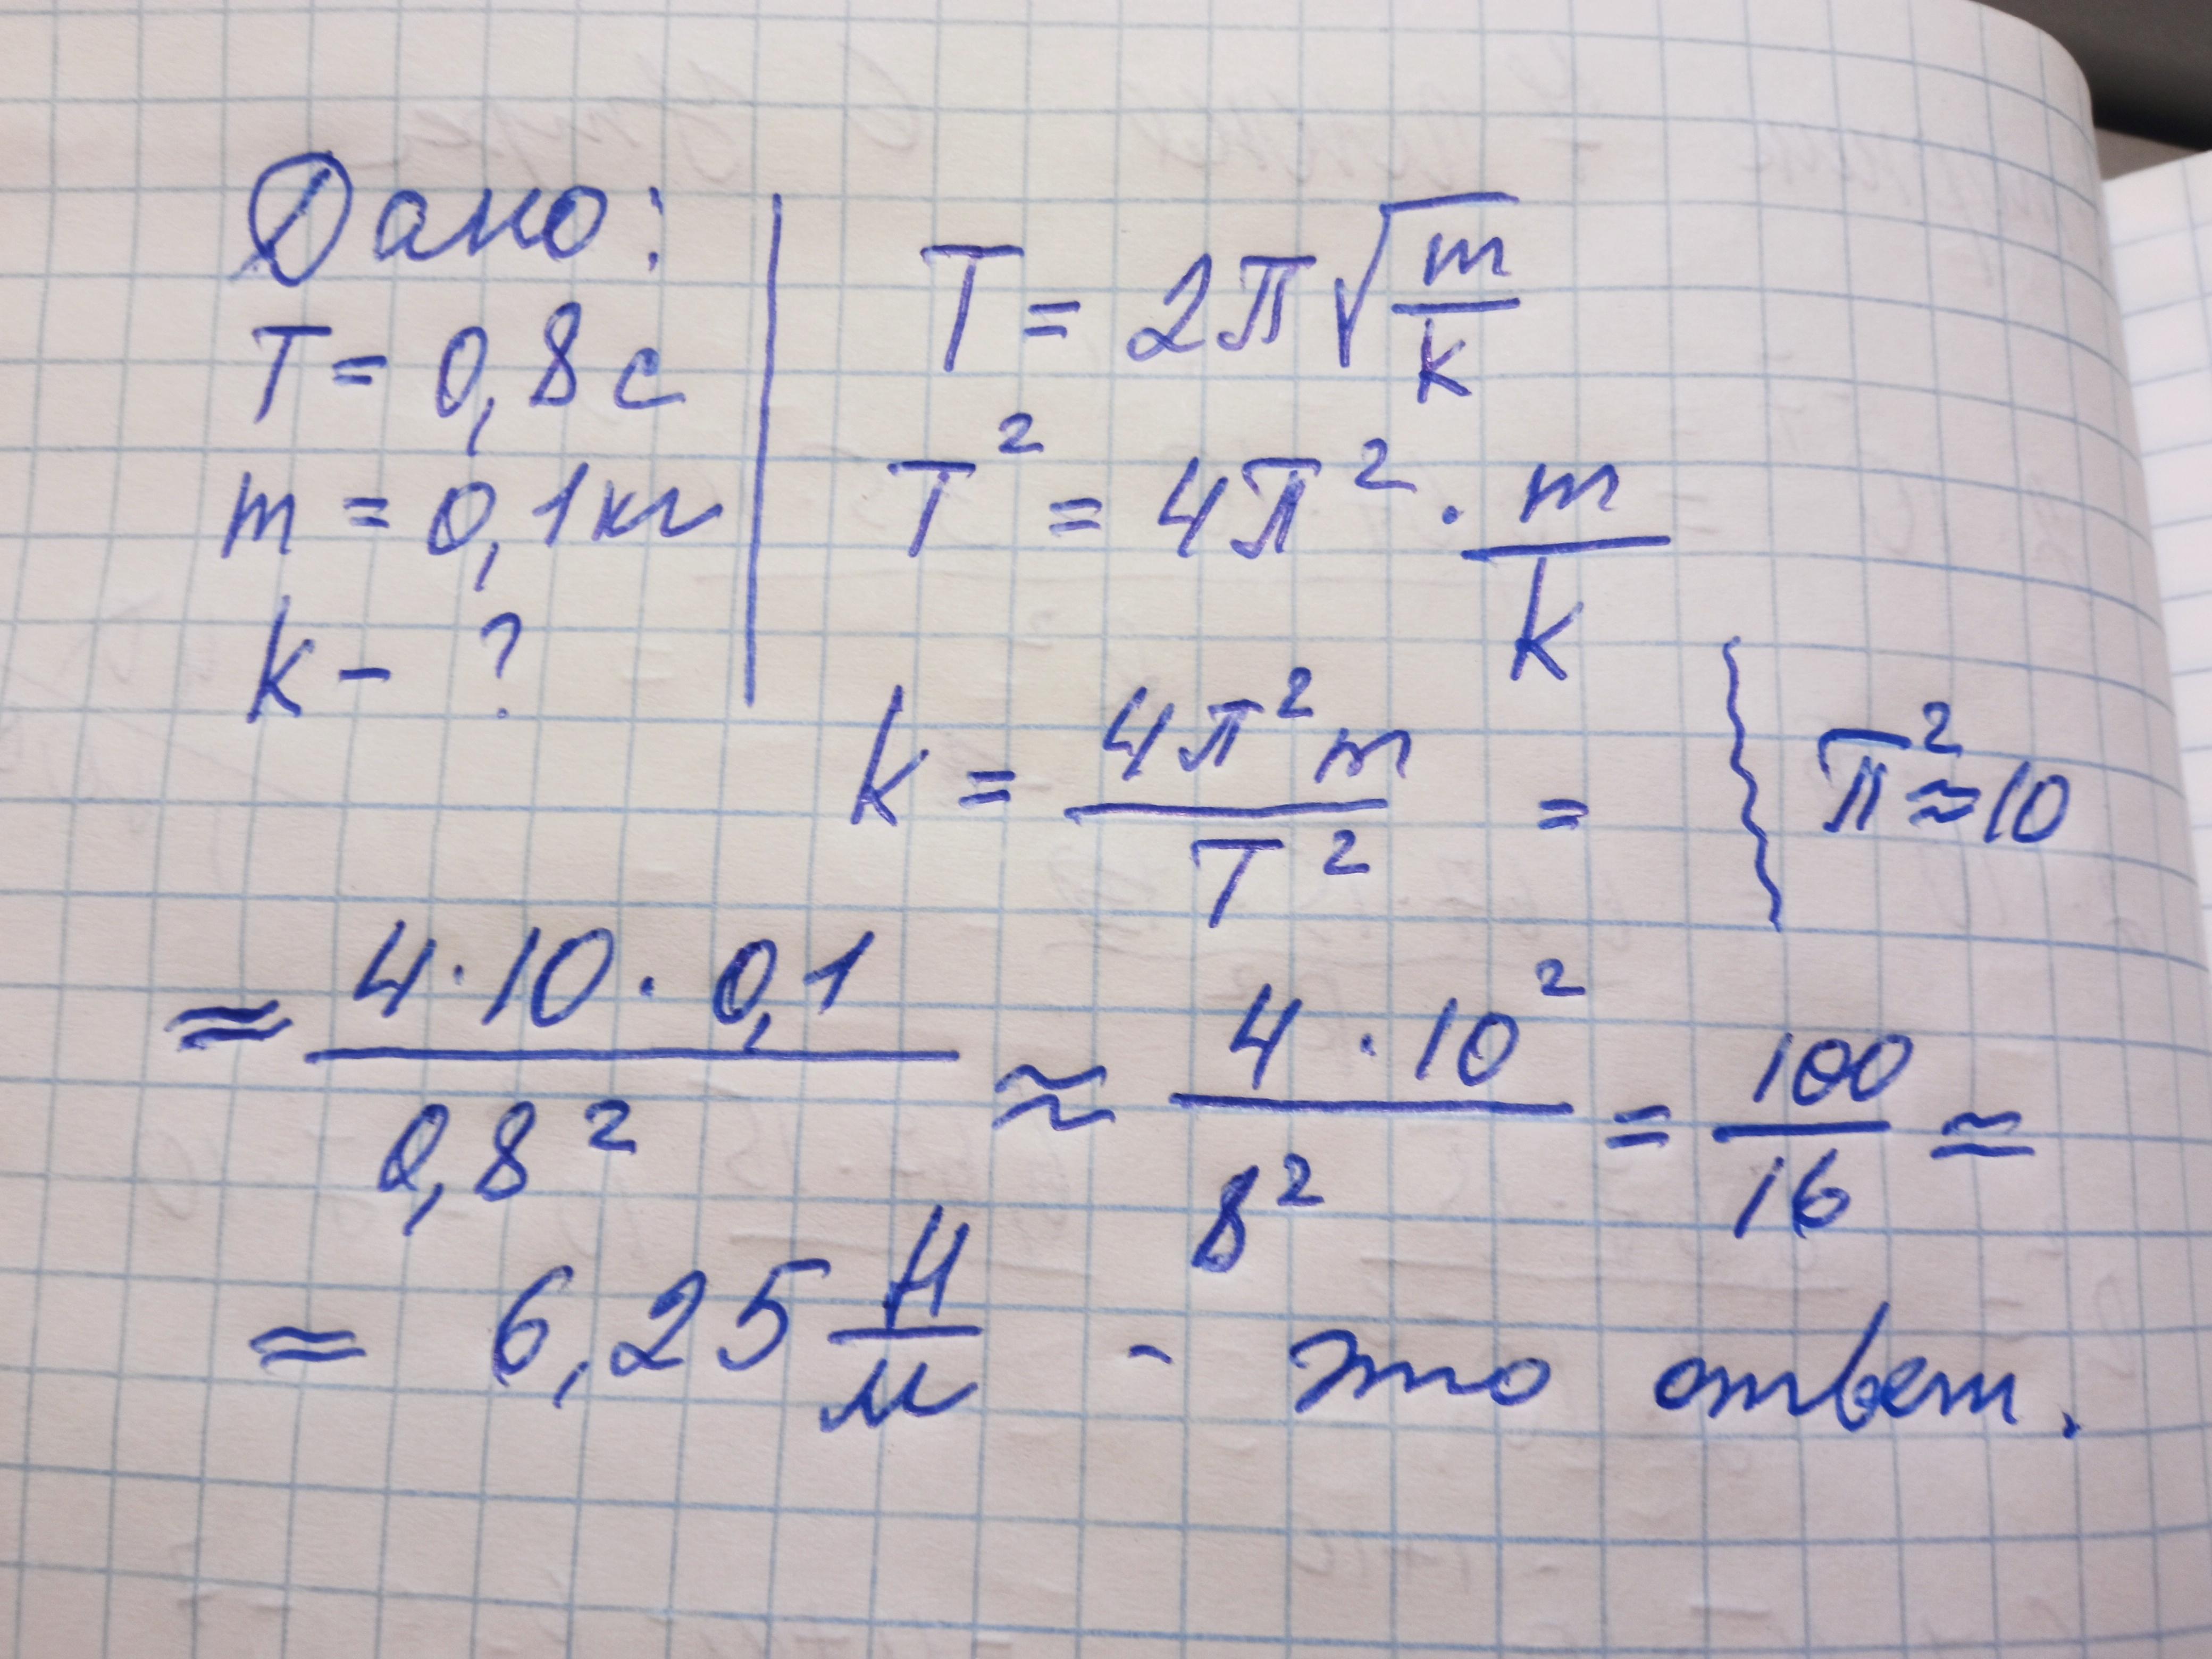 Дано:
T = 0,8 с
m = 0,1 кг
k - ?
T = 2π√(m/k)
T² = 4π² · m/k
k = 4π²m/T² = { π² ≈ 10
≈ 4·10·0,1/0,8² ≈ 4·10²/8² = 100/16 ≈
≈ 6,25 Н/м - это ответ.